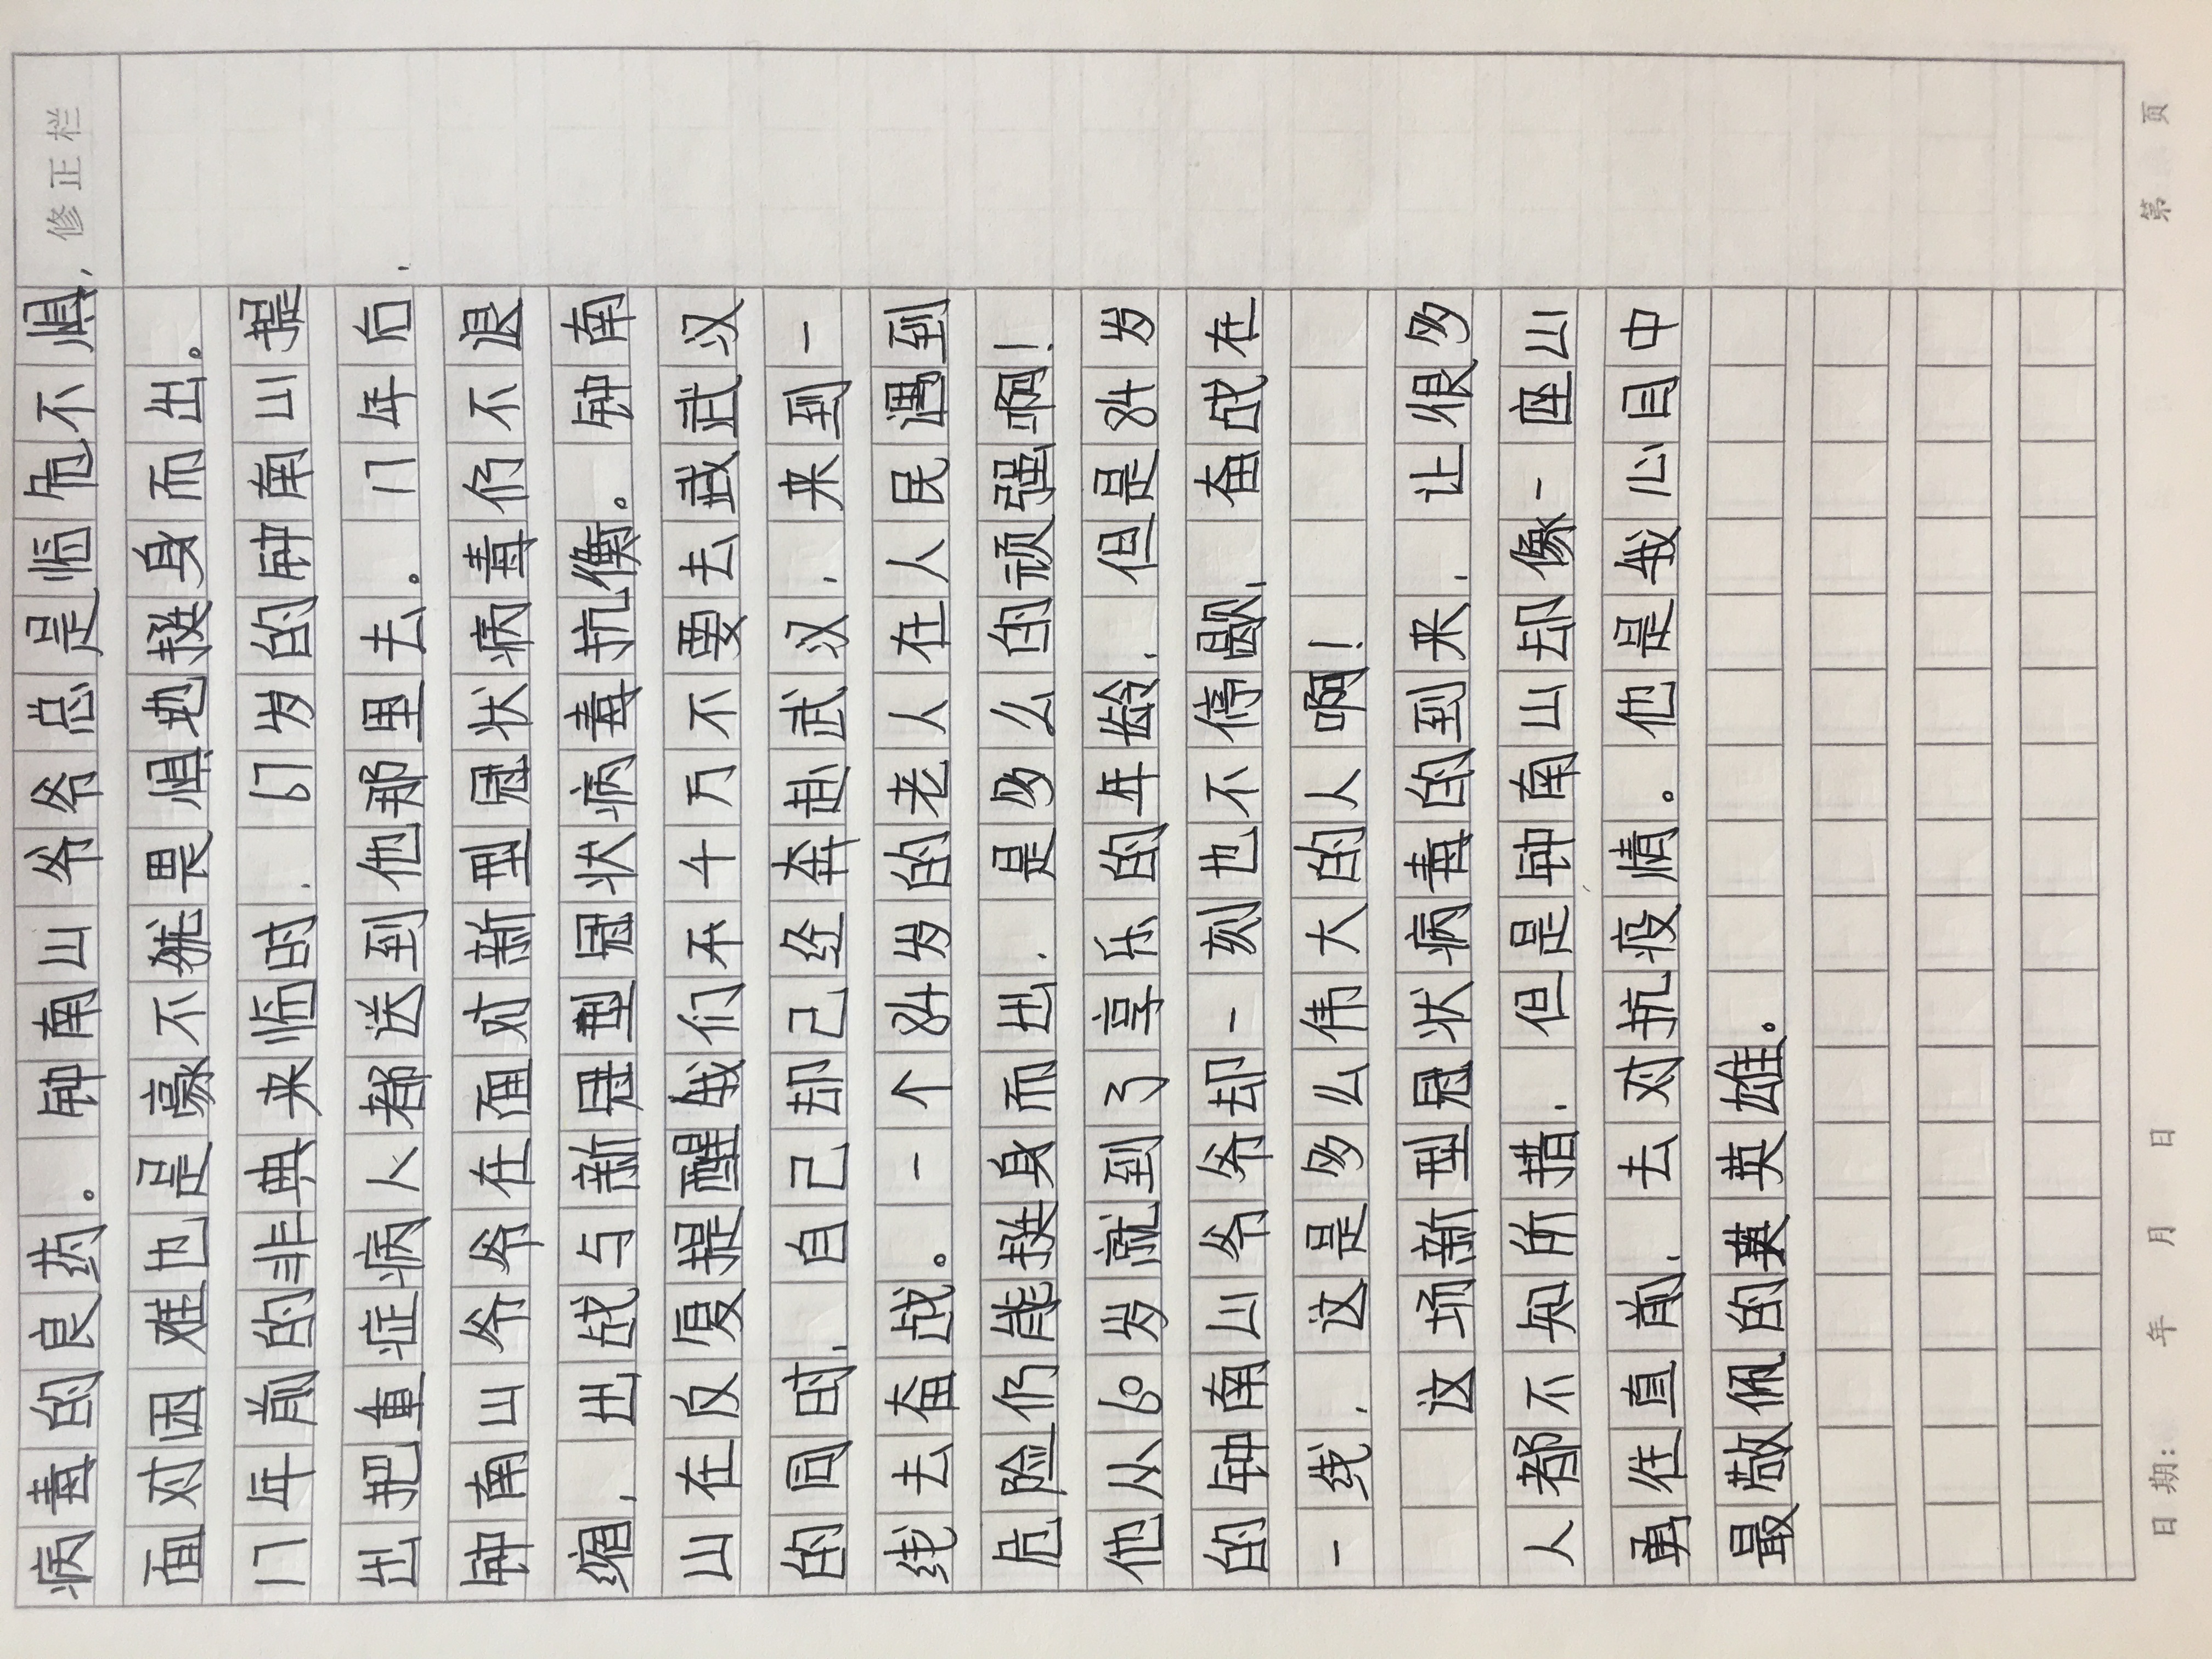 修正栏
病毒的良药。钟南山爷爷总是临危不惧，
面对困难也是豪不犹畏惧地挺身而出。
17年前的非典来临时，67岁的钟南山提
出把重症病人都送到他那里去。17年后，
钟南山爷爷在面对新型冠状病毒仍不退
缩，出战与新冠型冠状病毒抗衡。钟南
山在反复提醒我们不千万不要去武武汉
的同时，自己却已经奔赴武汉，来到一
线去奋战。一个84岁的老人在人民遇到
危险仍能挺身而出，是多么的顽强啊！
他从60岁就到了享乐的年龄，但是84岁
的钟南山爷爷却一刻也不停歇，奋战在
一线，这是多么伟大的人啊！
这场新型冠状病毒的到来，让很多
人都不知所措，但是钟南山却像一座山
勇往直前，去对抗疫情。他是我心目中
最敬佩的英英雄。
日期： 年 月 日 第 页